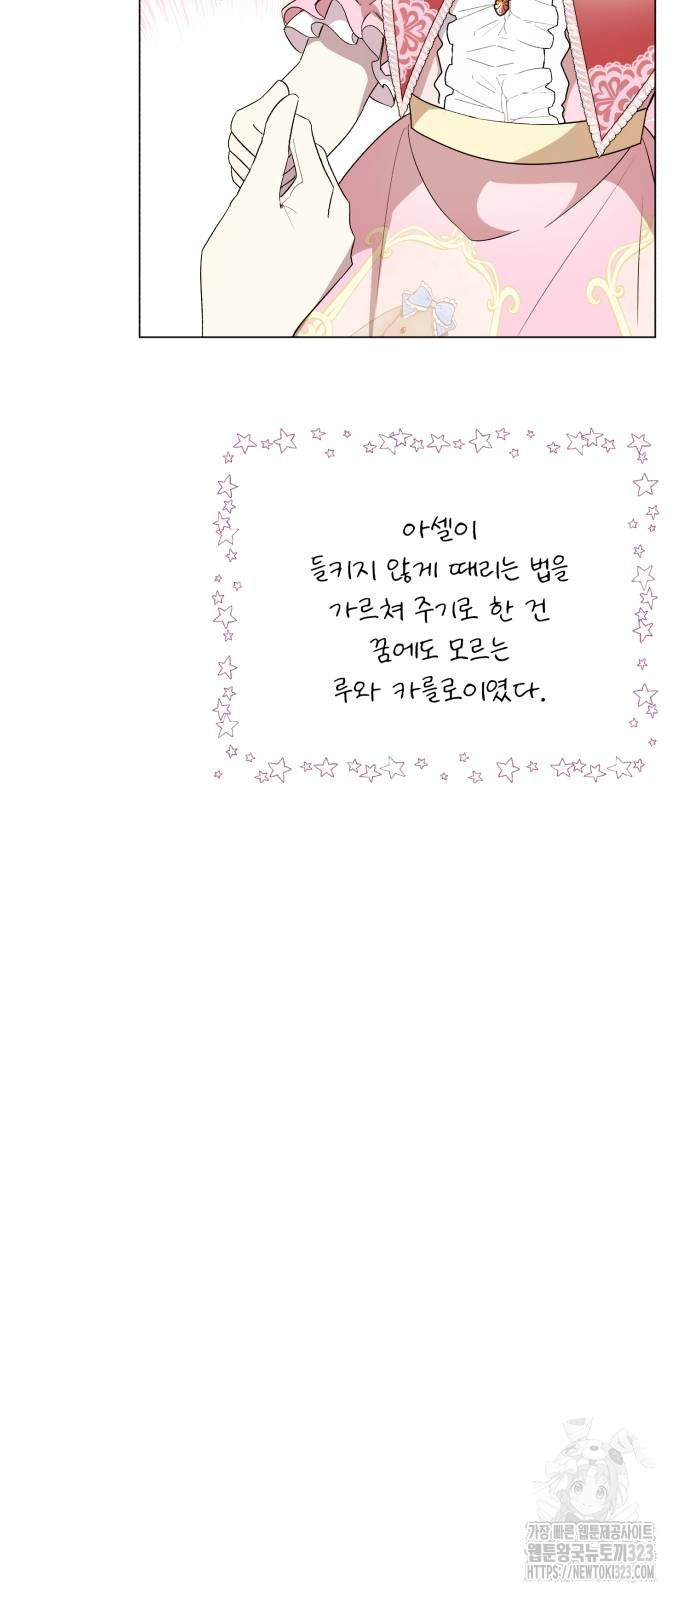 아셀이
들키지 않게 때리는 법을
가르쳐 주기로 한 건
꿈에도 모르는
루와 카를로이였다.
가장 빠른 웹툰제공사이트
웹툰왕국뉴토끼323
HTTPS://NEWTOKI323.COM